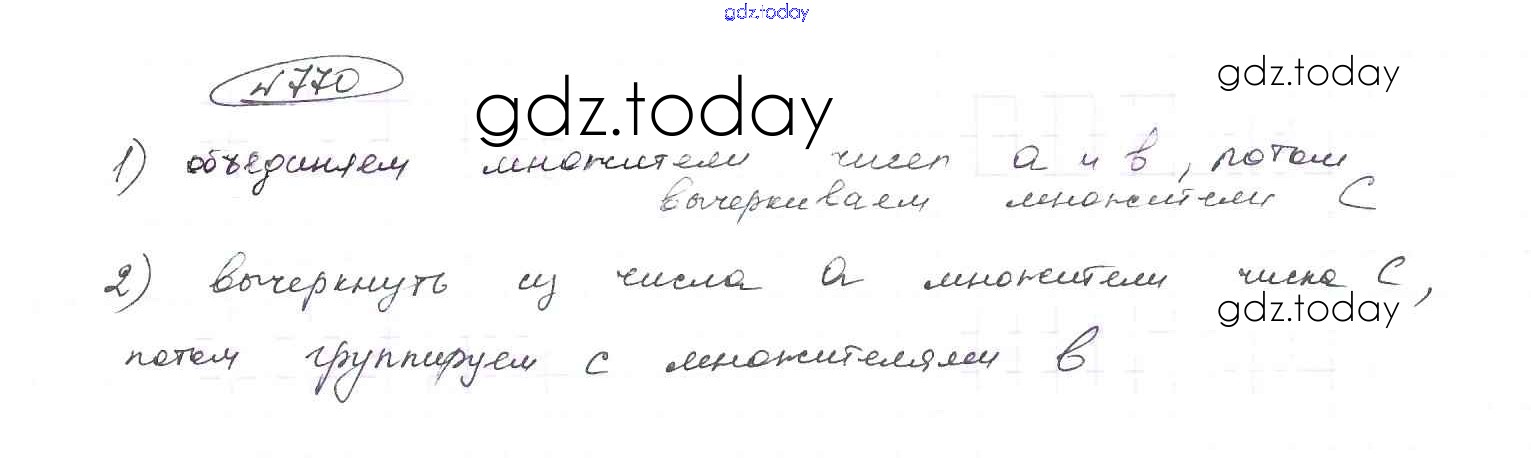 gdz.today
№ 770
gdz.today
gdz.today
1) объединяем множители чисел a и b, потом
вычеркиваем множители C
2) вычеркнуть из числа a множители числа C,
gdz.today
потом группируем с множителями b